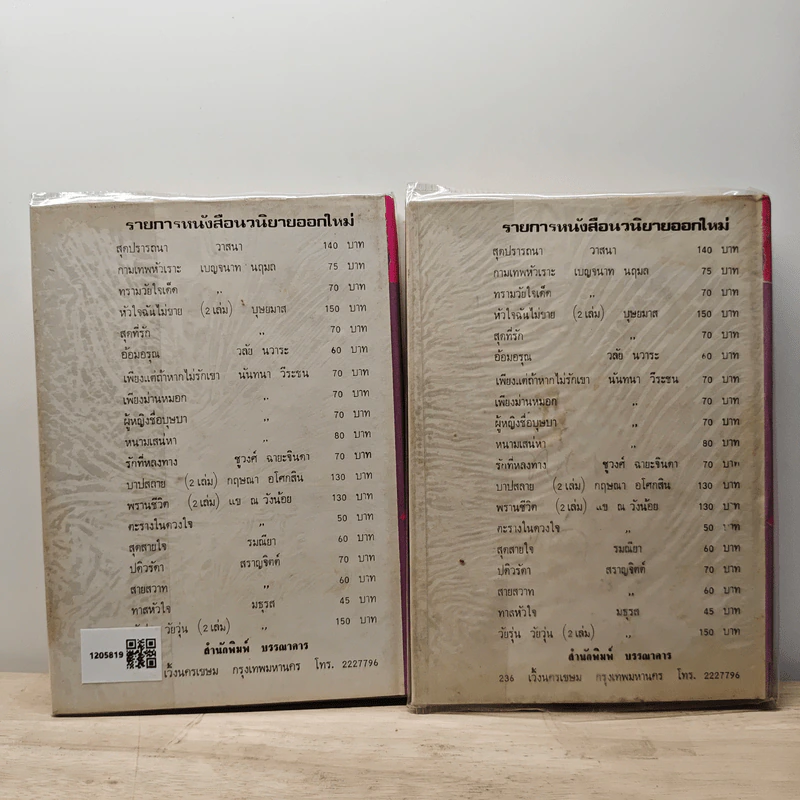 รายการหนังสือนวนิยายออกใหม่
สุดปรารถนา วาสนา 140 บาท
กามเทพหัวเราะ เบญจนาท นฤมล 75 บาท
ทรามวัยใจเด็ด ,, 70 บาท
หัวใจฉันไม่ขาย (2 เล่ม) บุษยมาส 150 บาท
สุดที่รัก ,, 70 บาท
อ้อมอรุณ วลัย นวาระ 60 บาท
เพียงแต่ถ้าหากไม่รักเขา นันทนา วีระชน 70 บาท
เพียงม่านหมอก ,, 70 บาท
ผู้หญิงชื่อบุษบา ,, 70 บาท
หนามเสน่หา ,, 80 บาท
รักที่หลงทาง ชูวงศ์ ฉายะจินดา 70 บาท
บาปสลาย (2 เล่ม) กฤษณา อโศกสิน 130 บาท
พรานชีวิต (2 เล่ม) แข ณ วังน้อย 130 บาท
ตะรางในดวงใจ ,, 50 บาท
สุดสายใจ รมณียา 60 บาท
ปดิวรัดา สราญจิตต์ 70 บาท
สายสวาท ,, 60 บาท
ทาสหัวใจ มธุรส 45 บาท
วัยวุ่น (2 เล่ม) ,, 150 บาท
สำนักพิมพ์ บรรณาคาร
เวิ้งนครเขษม กรุงเทพมหานคร โทร. 2227796
1205819
รายการหนังสือนวนิยายออกใหม่
สุดปรารถนา วาสนา 140 บาท
กามเทพหัวเราะ เบญจนาท นฤมล 75 บาท
ทรามวัยใจเด็ด ,, 70 บาท
หัวใจฉันไม่ขาย (2 เล่ม) บุษยมาส 150 บาท
สุดที่รัก ,, 70 บาท
อ้อมอรุณ วลัย นวาระ 60 บาท
เพียงแต่ถ้าหากไม่รักเขา นันทนา วีระชน 70 บาท
เพียงม่านหมอก ,, 70 บาท
ผู้หญิงชื่อบุษบา ,, 70 บาท
หนามเสน่หา ,, 80 บาท
รักที่หลงทาง ชูวงศ์ ฉายะจินดา 70 บาท
บาปสลาย (2 เล่ม) กฤษณา อโศกสิน 130 บาท
พรานชีวิต (2 เล่ม) แข ณ วังน้อย 130 บาท
ตะรางในดวงใจ ,, 50 บาท
สุดสายใจ รมณียา 60 บาท
ปดิวรัดา สราญจิตต์ 70 บาท
สายสวาท ,, 60 บาท
ทาสหัวใจ มธุรส 45 บาท
วัยรุ่น วัยวุ่น (2 เล่ม) ,, 150 บาท
สำนักพิมพ์ บรรณาคาร
236 เวิ้งนครเขษม กรุงเทพมหานคร โทร. 2227796